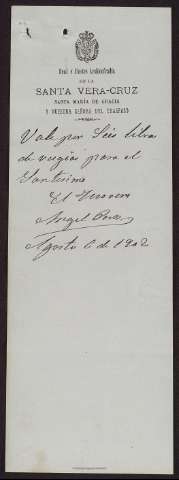 Real é Ilustre Archicofradía
DE LA
SANTA VERA-CRUZ
SANTA MARÍA DE GRACIA
Y NUESTRA SEÑORA DEL TRASPASO
Vale por Seis libras
de vugias para el
Santísimo
El Tesorero
Angel
Agosto 6 de 1902